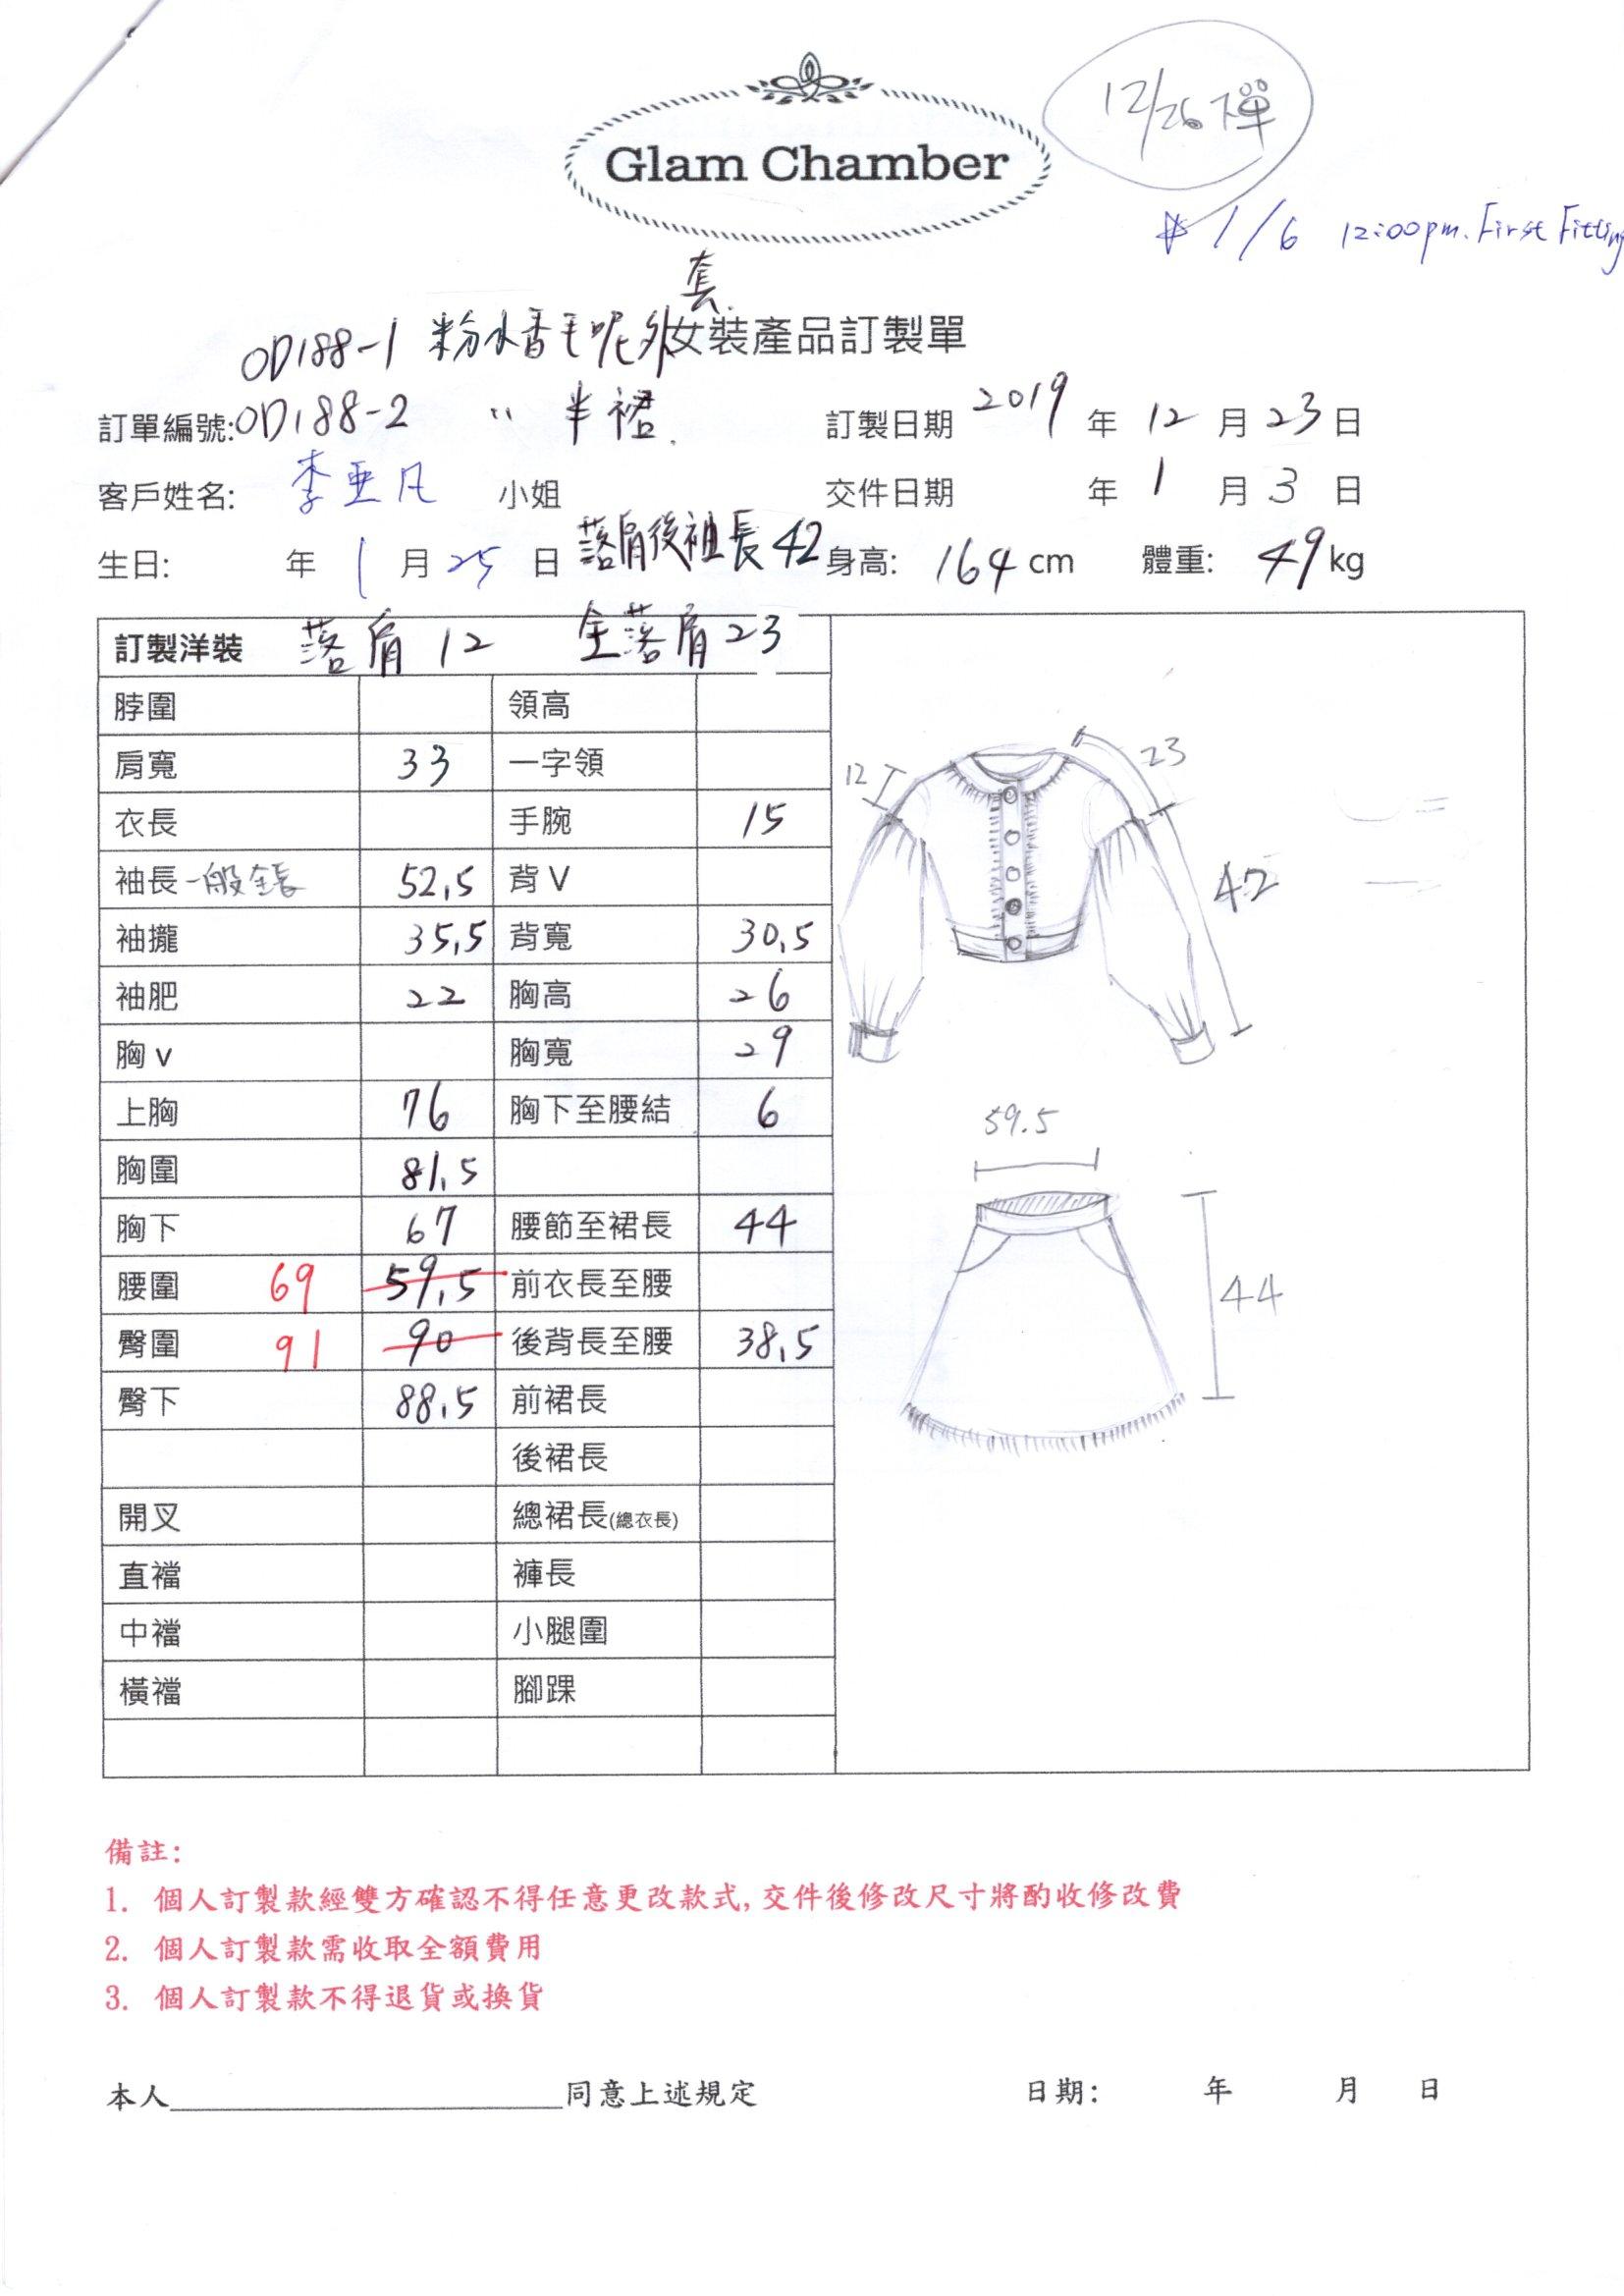 12/26下單
Glam Chamber
1/6 12:00pm. First Fitting
套
OD188-1 粉小香毛呢外 女裝產品訂製單
訂單編號:OD188-2 〃 半裙. 訂製日期 2019 年 12 月 23 日
客戶姓名: 李亜凡 小姐 交件日期 年 1 月 3 日
生日: 年 1 月 25 日 落肩後袖長42 身高: 164 cm 體重: 49 kg
訂製洋裝 落肩 12 全落肩 23
脖圍 領高
肩寬 33 一字領
衣長 手腕 15
袖長 一般全長 52.5 背 V
袖攏 35.5 背寬 30.5
袖肥 22 胸高 26
胸 v 胸寬 29
上胸 76 胸下至腰結 6
胸圍 81.5
胸下 67 腰節至裙長 44
腰圍 69 59.5 前衣長至腰
臀圍 91 90 後背長至腰 38.5
臀下 88.5 前裙長
後裙長
開叉 總裙長(總衣長)
直襠 褲長
中襠 小腿圍
橫襠 腳踝
12 23
42
59.5
44
備註:
1. 個人訂製款經雙方確認不得任意更改款式, 交件後修改尺寸將酌收修改費
2. 個人訂製款需收取全額費用
3. 個人訂製款不得退貨或換貨
本人 同意上述規定 日期: 年 月 日